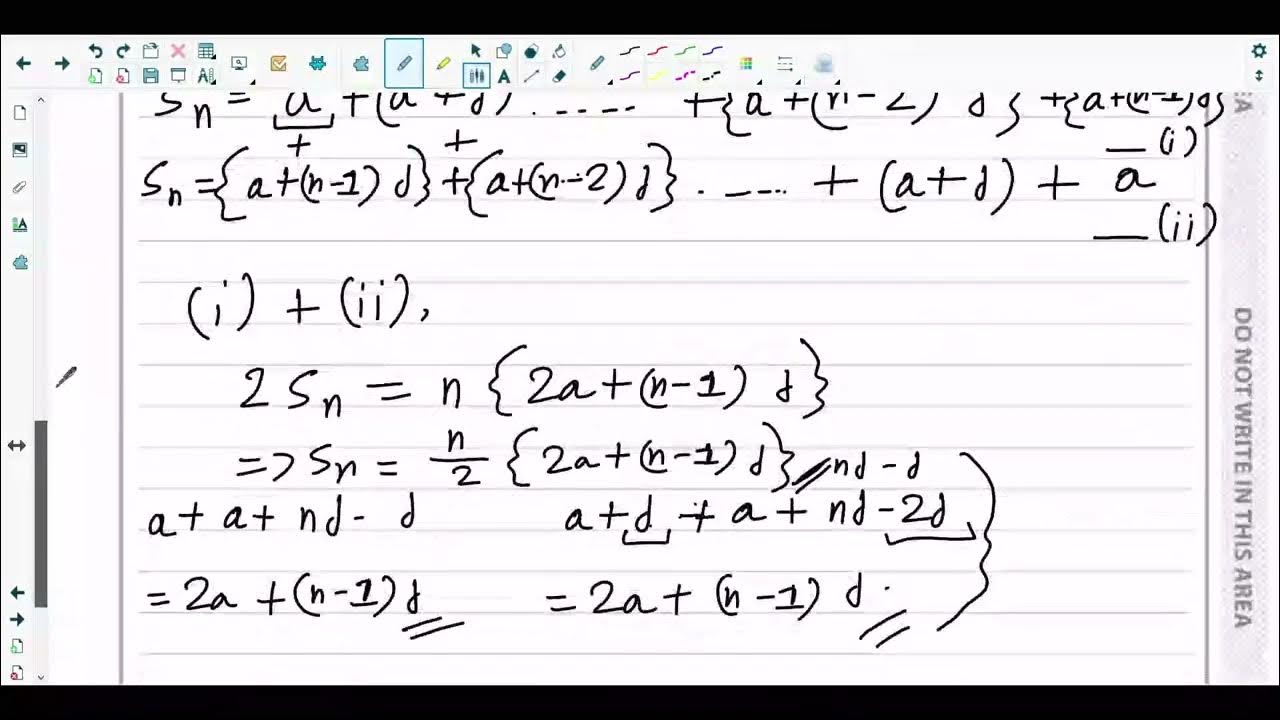 Sn = a + (a + d) ..... + {a + (n-2) d} + {a+(n-1)d}
+ +
— (i)
Sn = {a+(n-1) d} + {a+(n-2) d} ..... + (a+d) + a
— (ii)
(i) + (ii),
2 Sn = n {2a+(n-1) d}
=> Sn = n/2 {2a+(n-1) d} nd - d
a + a + nd - d a + d + a + nd - 2d
= 2a + (n-1) d = 2a + (n-1) d.
DO NOT WRITE IN THIS AREA
EA